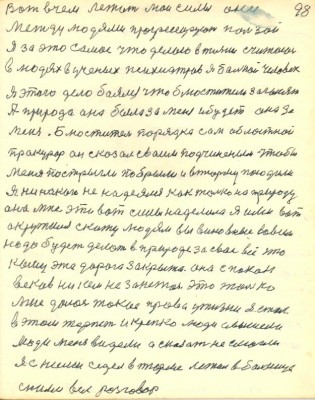 Вот в чем лежат мои силы они 98
между людями прогрессируют пользой
Я за это самое что делаю в тыми считаюсь
в людях в ученых психиатров я больной человек
Я этого дело боялся что блюстители
А природа она была за меня и будет она за
меня. Блюстители порядка сам областной
прокурор он сказал своим подчиненым чтобы
меня постригли побрили и в тюрму посадили
Я ни на кого не надеялся как только на природу
она мне эти вот силы наделила я или вот
скажу людям вы виновные во всем
надо будет делать в природе за свое всё это
кому эта дорога закрыта она с покон
веков никем не занятая это только
мне далось такое право в жизни я стал
в этом терпеть и крепко люди
люди меня видели а сказать не смогли
Я с ними сидел в тюрме лежал в больнице
с ними вел розговор